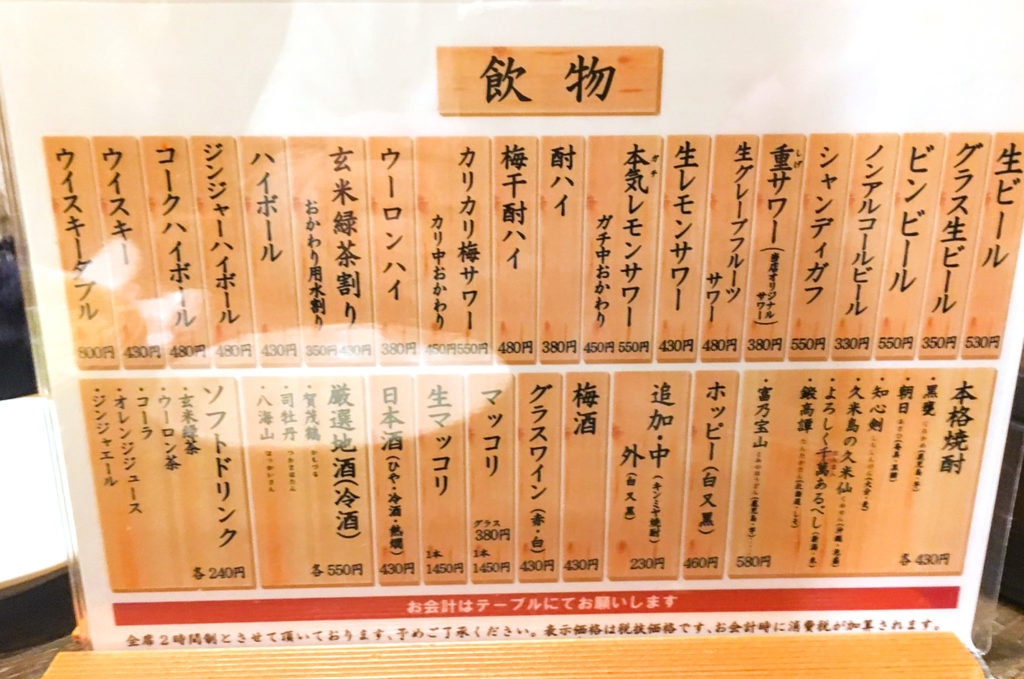 飲物
生ビール 530円
グラス生ビール 350円
ビンビール 550円
ノンアルコールビール 330円
シャンディガフ 550円
重サワー(当店オリジナルサワー) 380円
しげ
生グレープフルーツサワー 480円
生レモンサワー 430円
本気レモンサワー 550円
ガチ
ガチ中おかわり 450円
酎ハイ 380円
梅干酎ハイ 480円
カリカリ梅サワー 550円
カリ中おかわり 450円
ウーロンハイ 380円
玄米緑茶割り 430円
おかわり用水割り 350円
ハイボール 430円
ジンジャーハイボール 480円
コークハイボール 480円
ウイスキー 430円
ウイスキーダブル 800円
本格焼酎 各430円
・黒甕
・朝日
・知心剣
・久米島の久米仙
・よろしく千萬あるべし
・鍛高譚
・富乃宝山 580円
ホッピー(白又黒) 460円
追加・中(キンミヤ焼酎)
外(白又黒) 230円
梅酒 430円
グラスワイン(赤・白) 430円
マッコリ
グラス 380円
1本 1450円
生マッコリ
1本 1450円
日本酒(ひや・冷酒・熱燗) 430円
厳選地酒(冷酒) 各550円
・賀茂鶴 かもづる
・司牡丹 つかさぼたん
・八海山 はっかいさん
ソフトドリンク 各240円
・玄米緑茶
・ウーロン茶
・コーラ
・オレンジジュース
・ジンジャエール
お会計はテーブルにてお願いします
全席2時間制とさせて頂いております、予めご了承ください。表示価格は税抜価格です、お会計時に消費税が加算されます。